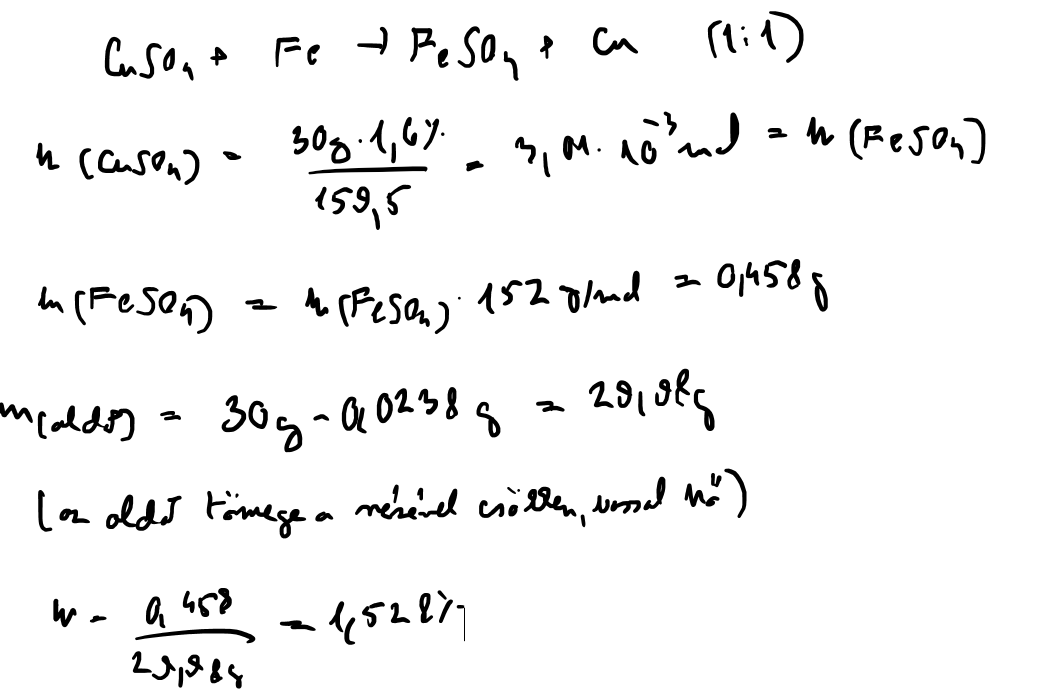 CuSO4 + Fe → FeSO4 + Cu (1:1)
n (CuSO4) = 30g · 1,6% / 159,5 = 3,01 · 10^-3 mol = n (FeSO4)
m (FeSO4) = n (FeSO4) · 152 g/mol = 0,458 g
m(oldat) = 30g - 0,0238 g = 29,98g
(az oldat tömege a rézével csökken, vassal nő)
w = 0,458 / 29,98g = 1,528%